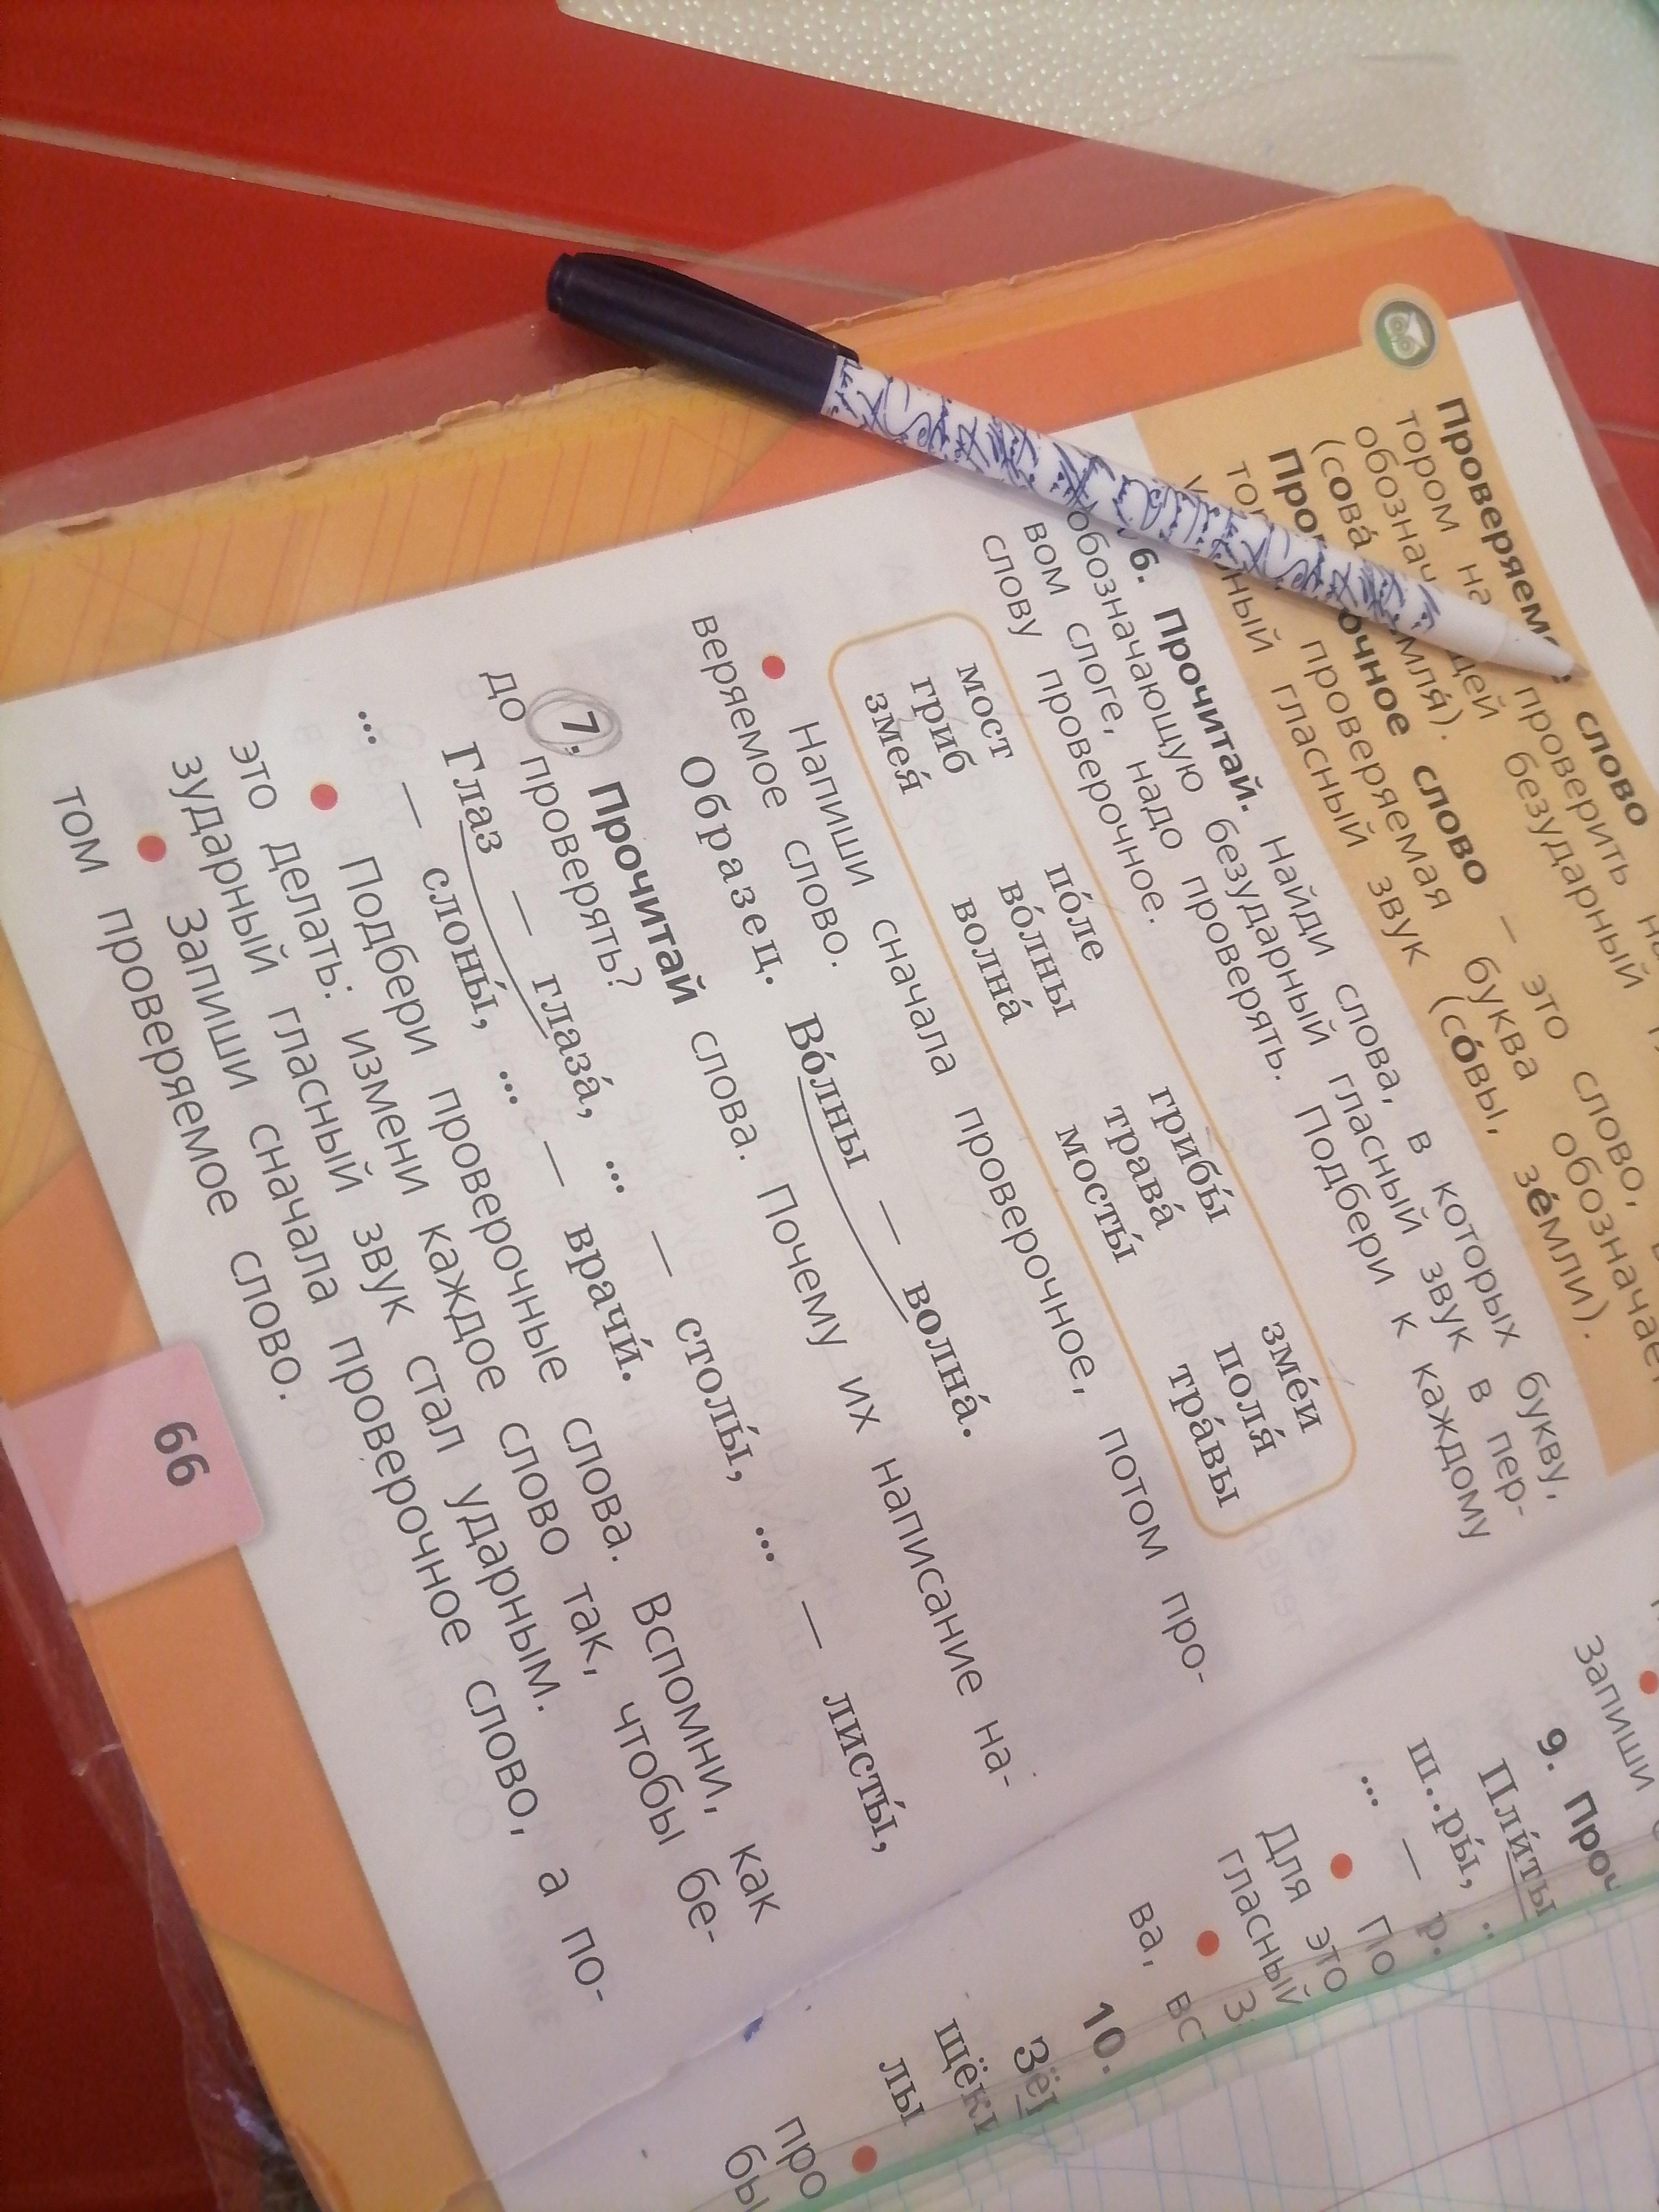 слово
тором проверить
безударный
(сова́ мля́).
слово – это слово,
проверяемая буква обозначае
гласный звук (со́вы, зе́мли).
6. Прочитай. Найди слова, в которых букву,
обозначающую безударный гласный звук в пер-
вом слоге, надо проверять. Подбери к каждому
слову проверочное.
мост по́ле грибы́ зме́и
гриб во́лны трава́ поля́
змея́ волна́ мосты́ тра́вы
• Напиши сначала проверочное, потом про-
веряемое слово.
Образец. Во́лны – волна́.
7. Прочитай слова. Почему их написание на-
до проверять?
Глаз – глаза́, ... – столы́, ... – листы́,
... – слоны́, ... – врачи́.
• Подбери проверочные слова. Вспомни, как
это делать: измени каждое слово так, чтобы бе-
зударный гласный звук стал ударным.
• Запиши сначала проверочное слово, а по-
том проверяемое слово.
66
Запиши
9.
Пли́ты
ш..ры́,
... – р.
• По
Для это
гласный
•
ва,
10.
щёки
лы
•
про
бы